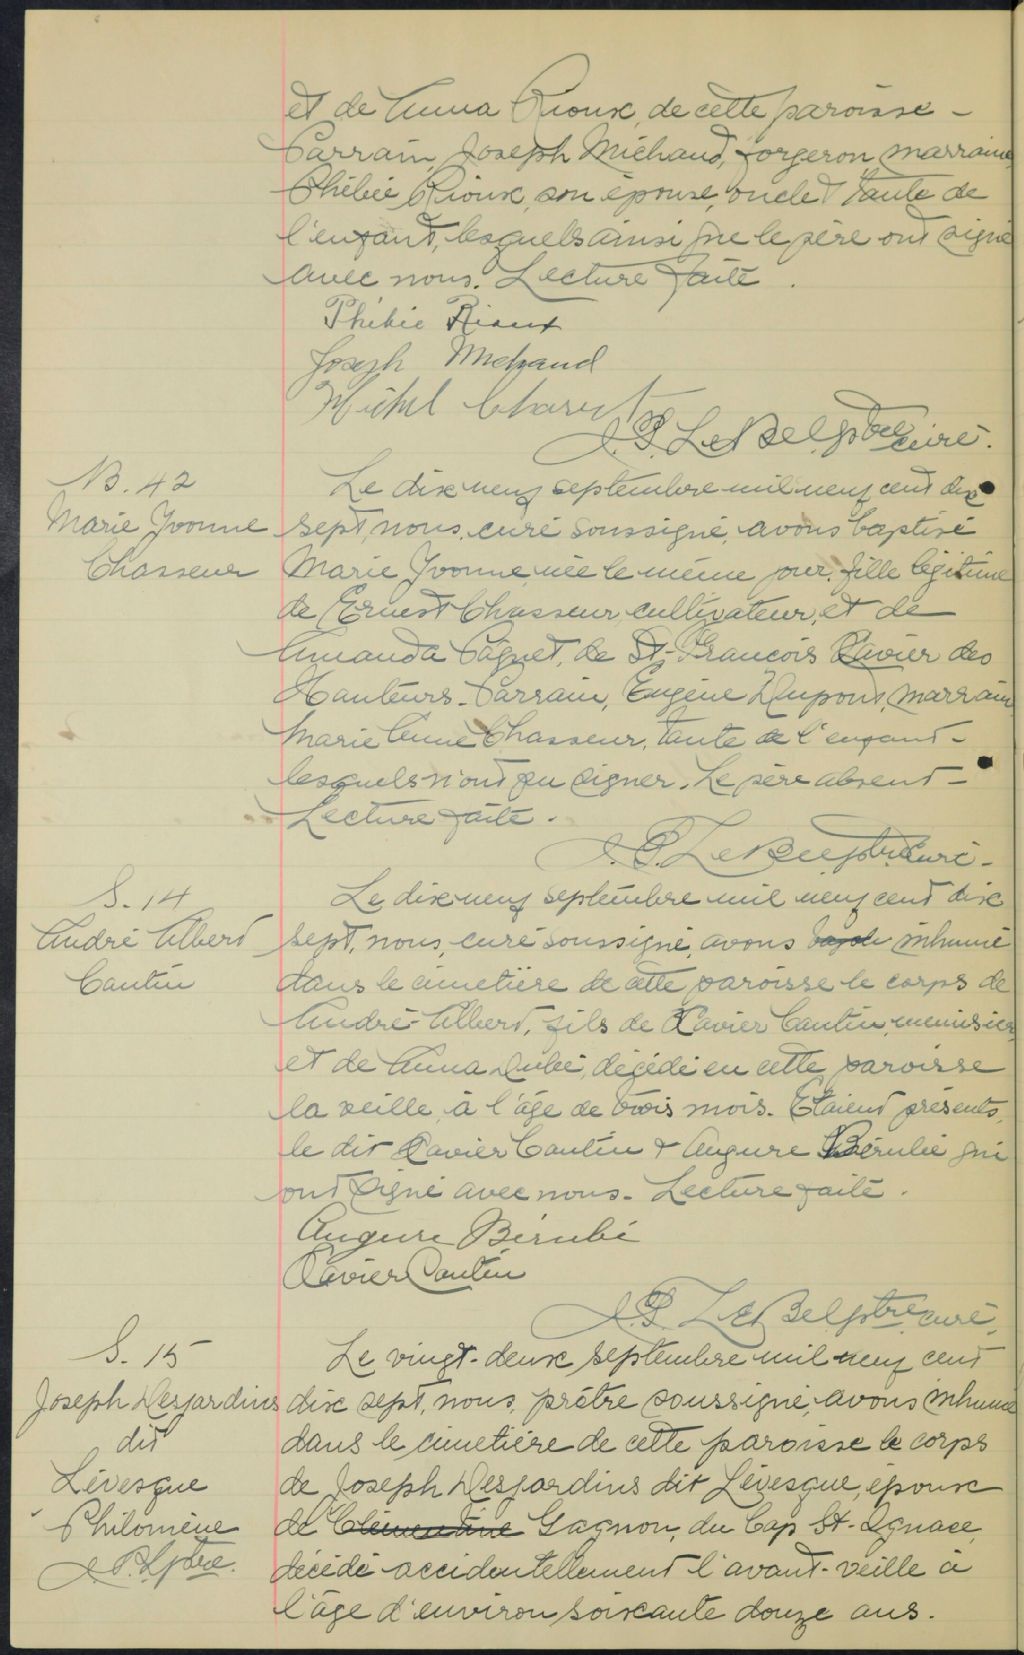 et de Anna Rioux, de cette paroisse -
Parrain, Joseph Michaud, forgeron, marraine,
Phébée Rioux, son épouse, oncle & tante de
l'enfant, lesquels ainsi que le père ont signé
avec nous. Lecture faite.
Phébée Rioux
Joseph Michaud
Michel
J.P. LeBel, ptre curé.
B. 42
Marie Yvonne
Chasseur
Le dix neuf septembre mil neuf cent dix
sept, nous, curé soussigné, avons baptisé
Marie Yvonne, née le même jour, fille légitime
de Ernest Chasseur, cultivateur, et de
Amanda Paquet, de St-François Xavier des
Hauteurs. Parrain, Eugène Dupont, marraine
Marie Anne Chasseur, tante de l'enfant -
lesquels n'ont pu signer. Le père absent -
Lecture faite.
J.P. LeBel, ptre curé -
S. 14
André Albert
Cantin
Le dix neuf septembre mil neuf cent dix
sept, nous, curé soussigné, avons inhumé
dans le cimetière de cette paroisse le corps de
André-Albert, fils de Xavier Cantin, menuisier,
et de Anna Dubé, décédé en cette paroisse
la veille, à l'âge de trois mois. Etaient présents,
le dit Xavier Cantin & Augure Bérubé qui
ont signé avec nous. Lecture faite.
Augure Bérubé
Xavier Cantin
J.P. LeBel, ptre curé,
S. 15
Joseph Desjardins
dit
Lévesque
Philomène
J.P.L. ptre.
Le vingt-deux septembre mil neuf cent
dix sept, nous, prêtre soussigné, avons inhumé
dans le cimetière de cette paroisse le corps
de Joseph Desjardins dit Lévesque, époux
de Clémentine Gagnon, du Cap St-Ignace,
décédé accidentellement l'avant-veille à
l'âge d'environ soixante douze ans.